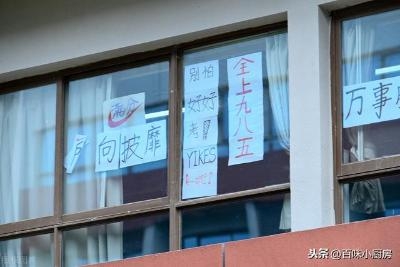 满分
向披靡
别怕
好好
考
YIKES
全上九八五
万事
头条@百味小厨房